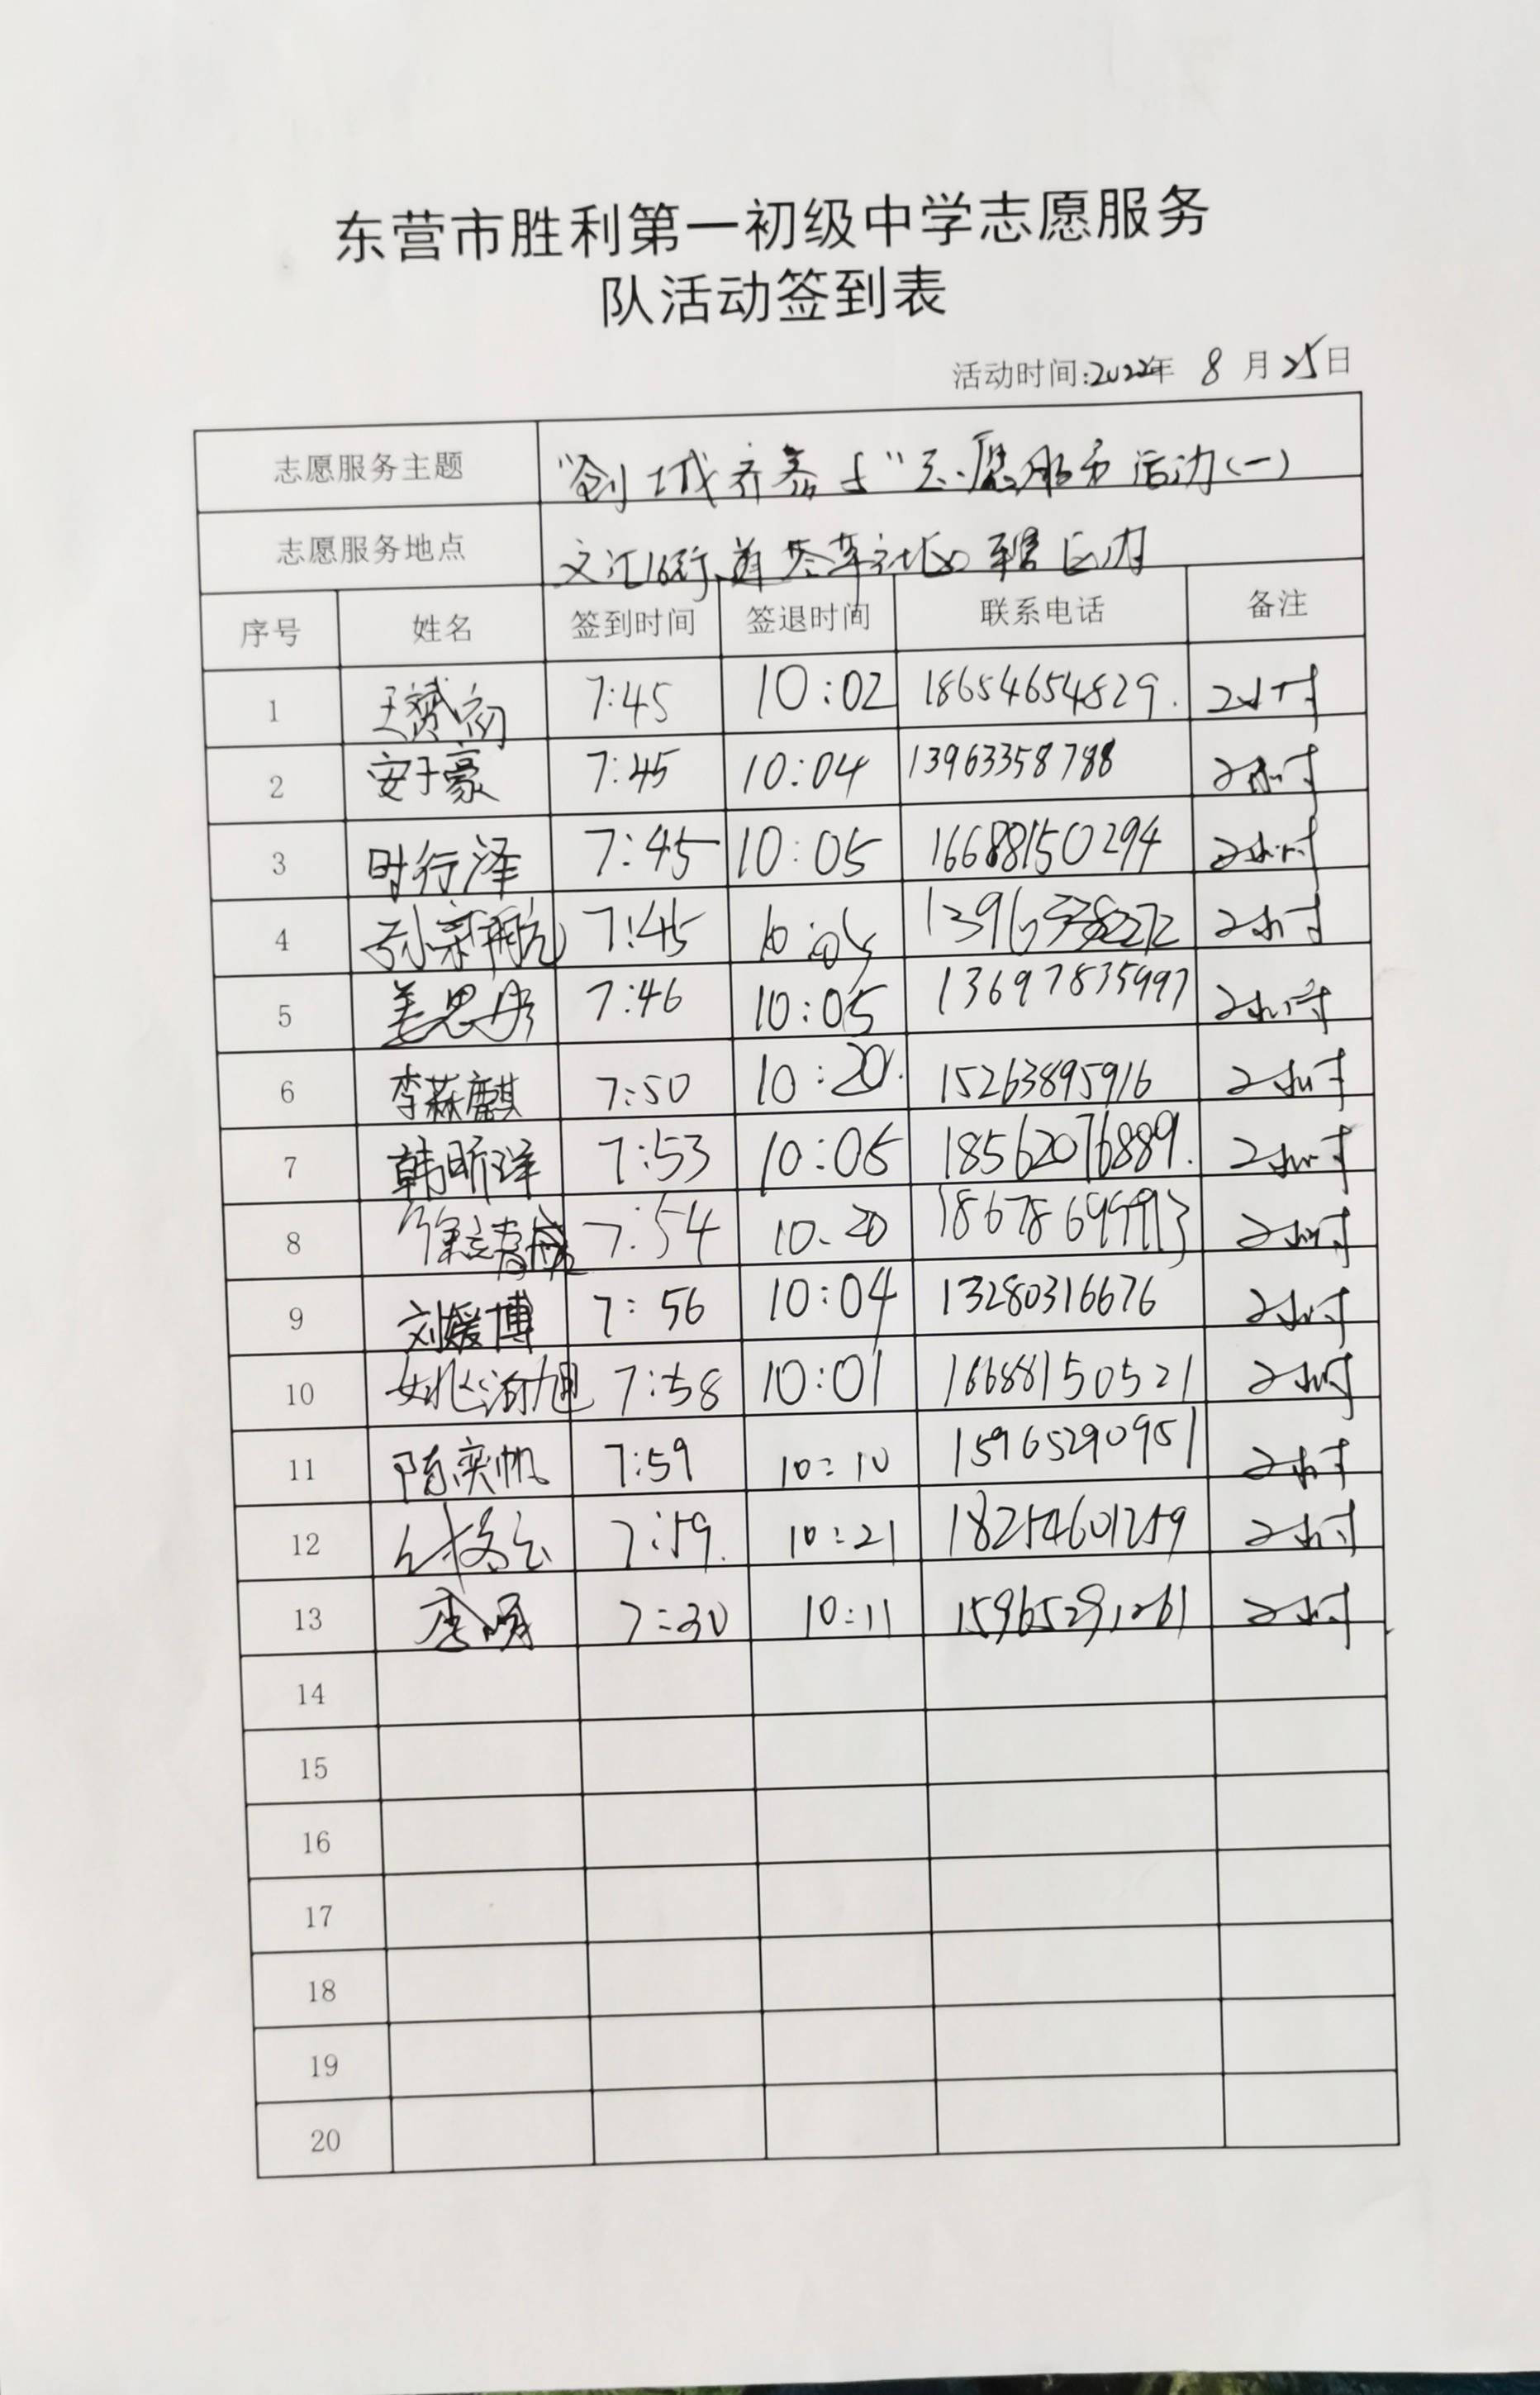 东营市胜利第一初级中学志愿服务
队活动签到表
活动时间:2022年 8 月 25日
志愿服务主题 "创城齐参与"志愿服务活动(一)
志愿服务地点 文汇街道 社区辖区内
序号 姓名 签到时间 签退时间 联系电话 备注
1 王赟 7:45 10:02 18654654829. 2小时
2 安于豪 7:45 10:04 13963358788 2小时
3 时行泽 7:45 10:05 16688150294 2小时
4 孙宗航 7:45 2小时
5 姜思彤 7:46 10:05 13697835997 2小时
6 李霖麒 7:50 10:20. 15263895916 2小时
7 韩昕洋 7:53 10:05 18562076889. 2小时
8 徐 7:54 10:20 2小时
9 刘媛博 7:56 10:04 13280316676 2小时
10 姚渝旭 7:58 10:01 16688150521 2小时
11 陈奕帆 7:59 10:10 15965290951 2小时
12 7:59. 10:21 18254601259 2小时
13 李 7:30 10:11 15965291261 2小时
14
15
16
17
18
19
20